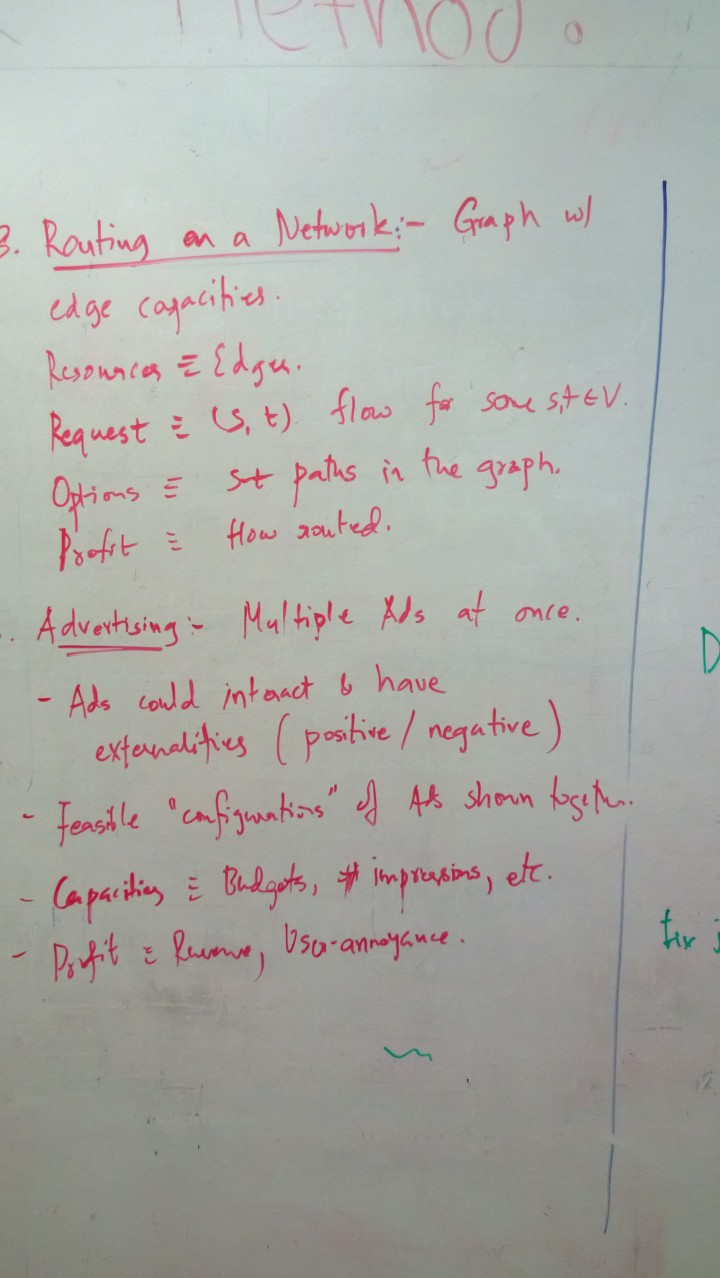 Method.
3. Routing on a Network:- Graph w/
edge capacities.
Resources ≡ Edges.
Request ≡ (s, t) flow for some s,t ∈ V.
Options ≡ s-t paths in the graph.
Profit ≡ flow routed.
. Advertising:- Multiple Ads at once.
- Ads could interact & have
externalities (positive / negative)
- Feasible "configurations" of Ads shown together.
- Capacities ≡ Budgets, # impressions, etc.
- Profit ≡ Revenue, User-annoyance.
D